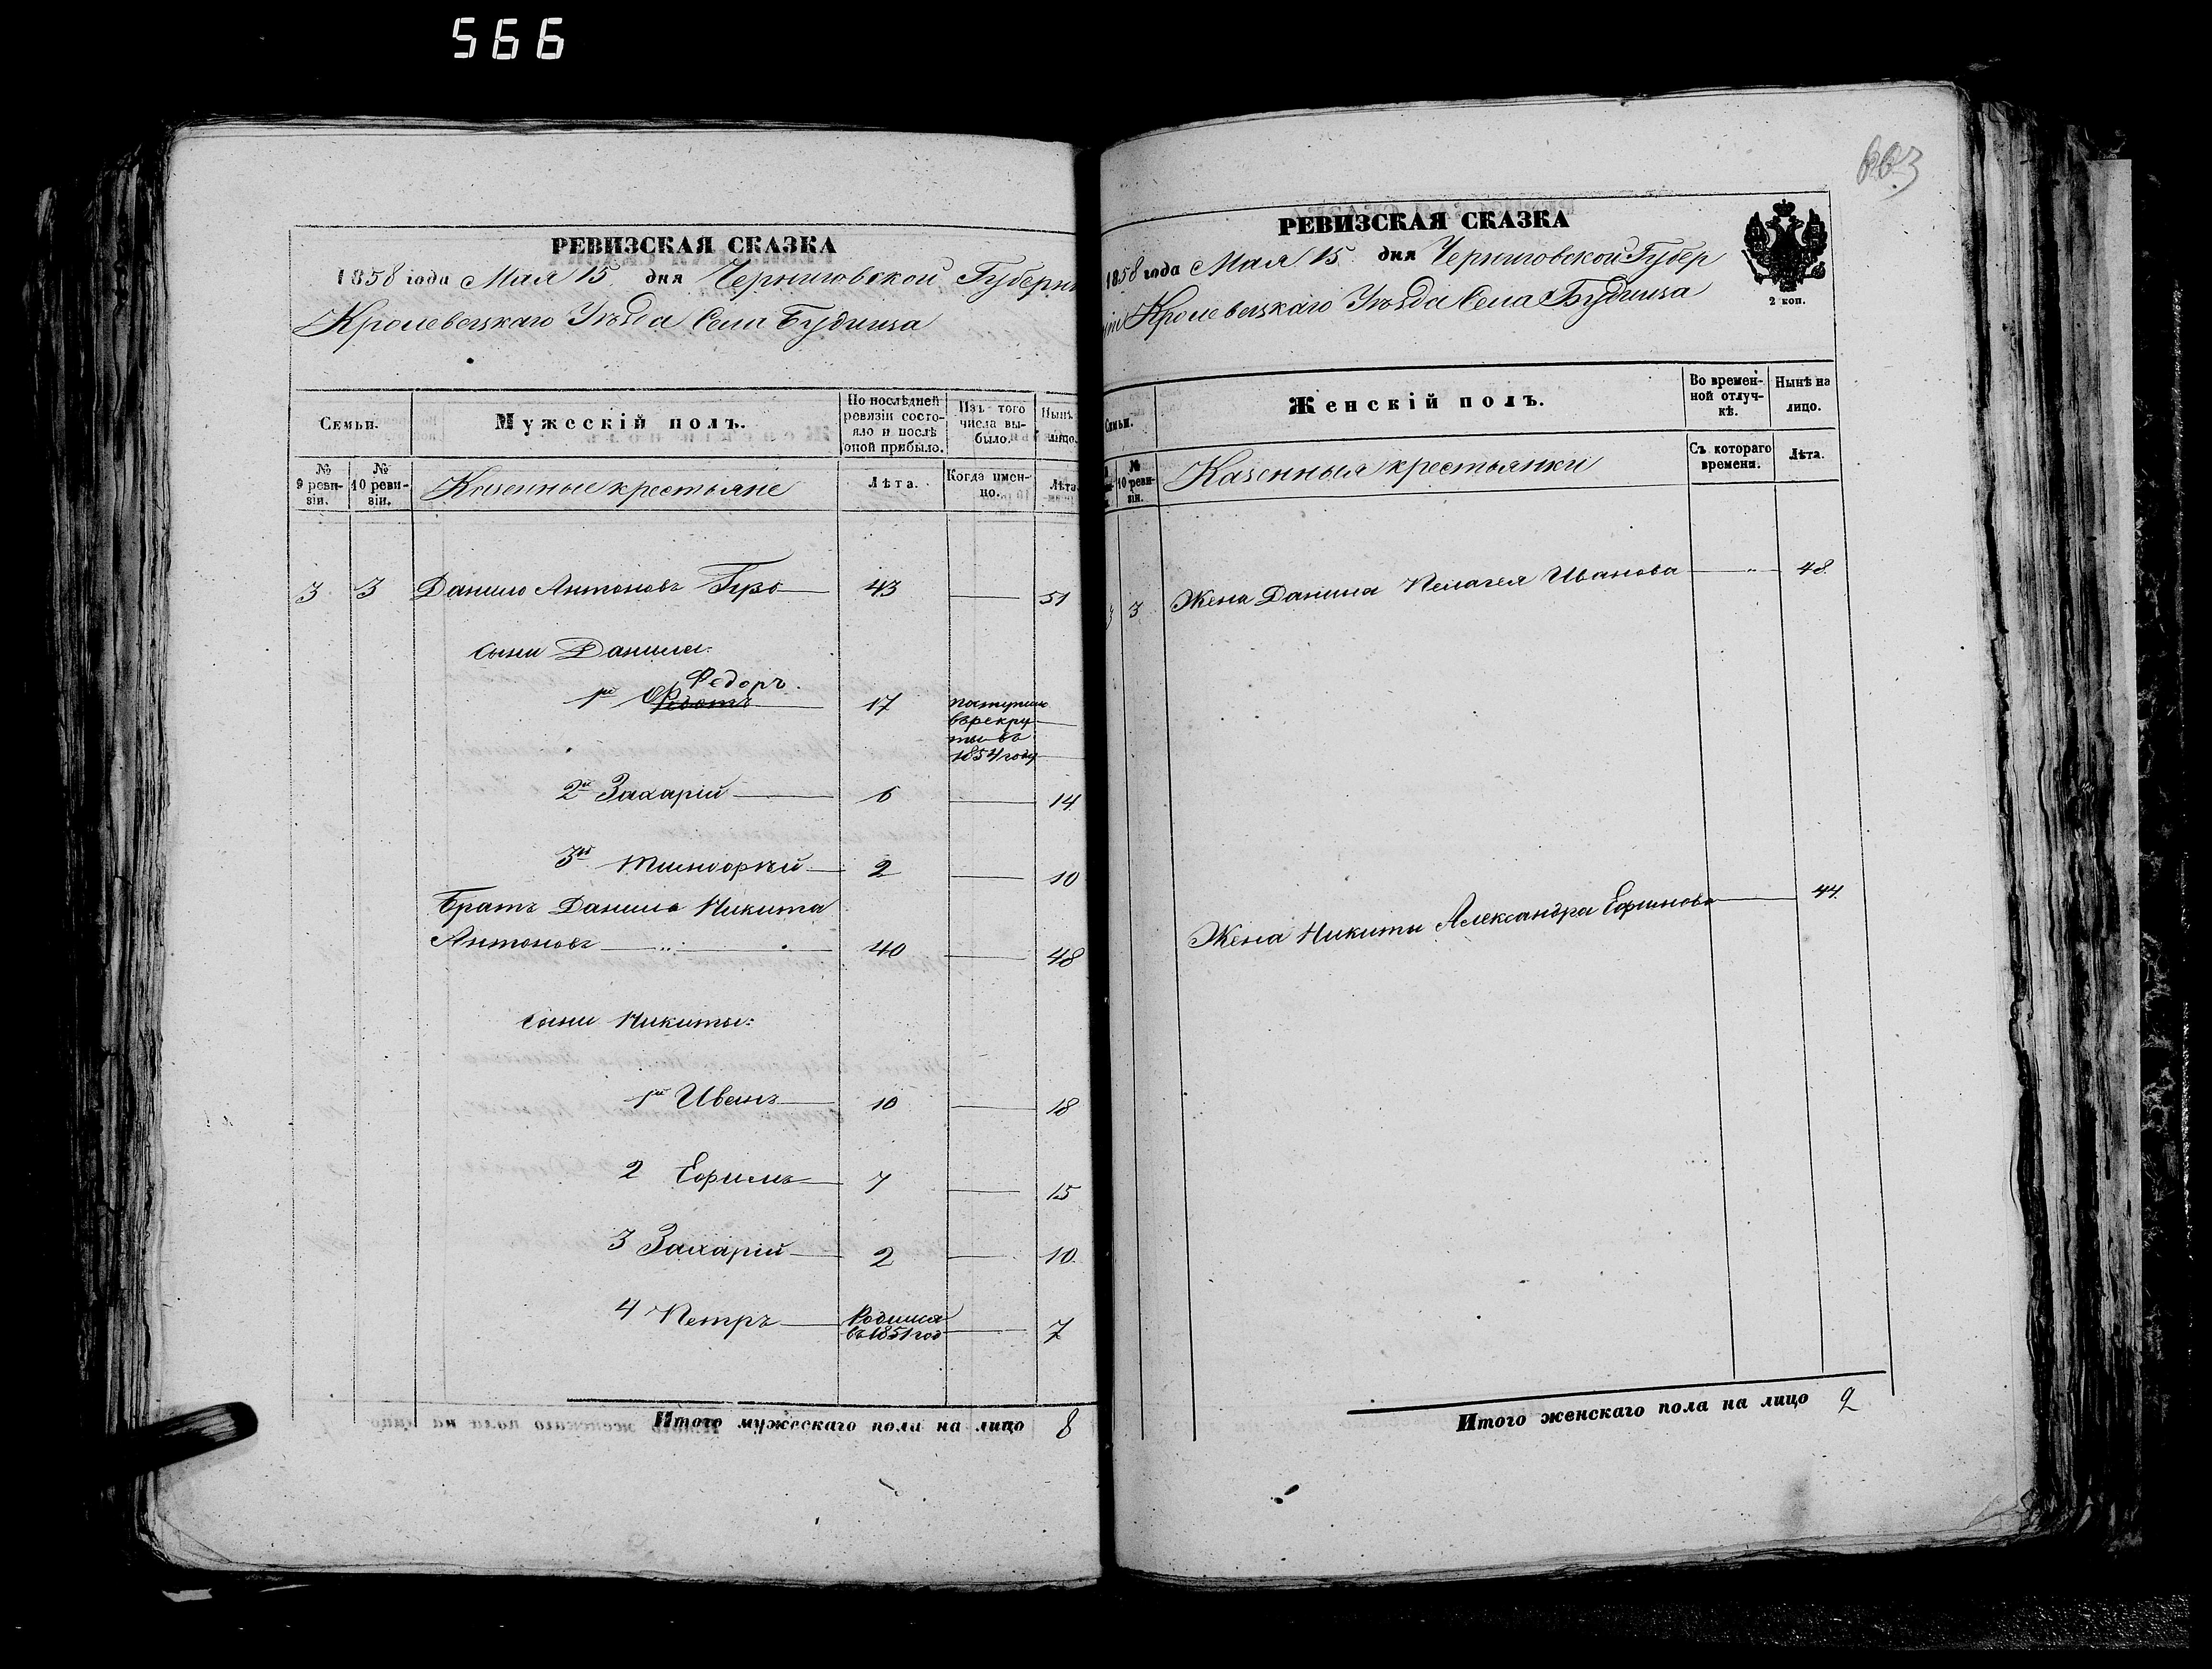 566
663
РЕВИЗСКАЯ СКАЗКА
1858 года Мая 15 дня Черниговской Губерн
Кролевецкаго Уѣзда Села Будища
Семьи.
Мужескій полъ.
По послѣдней ревизіи состояло и послѣ оной прибыло.
Изъ того числа выбыло.
Нынѣ лицо.
№ 9 ревизіи.
№ 10 ревизіи.
Казенные крестьяне
Лѣта.
Когда именно.
Лѣта
3 3 Данило Антоновъ 43 51
сыни Данила:
Федоръ.
1й Федотъ 17 поступил
в рекру
ты въ
1854 году
2й Захарій 6 14
3й Тимофѣй 2 10
Братъ Данила Никита
Антоновъ 40 48
сыни Никиты:
1й Иванъ 10 18
2 Ефимъ 7 15
3 Захарій 2 10
4 Петръ Родился 7
въ 1851 год
Итого мужескаго пола на лицо 8
РЕВИЗСКАЯ СКАЗКА
1858 года Мая 15 дня Черниговской Губер
ніи Кролевецкаго Уѣзда Села Будища
2 коп.
Семьи.
Женскій полъ.
Во временной отлучкѣ.
Нынѣ на лицо.
№ 10 ревизіи.
Казенныя крестьянки
Съ котораго времени.
Лѣта.
3 3 Жена Данила Пелагея Иванова 48
Жена Никиты Александра Ефимова 44
Итого женскаго пола на лицо 2